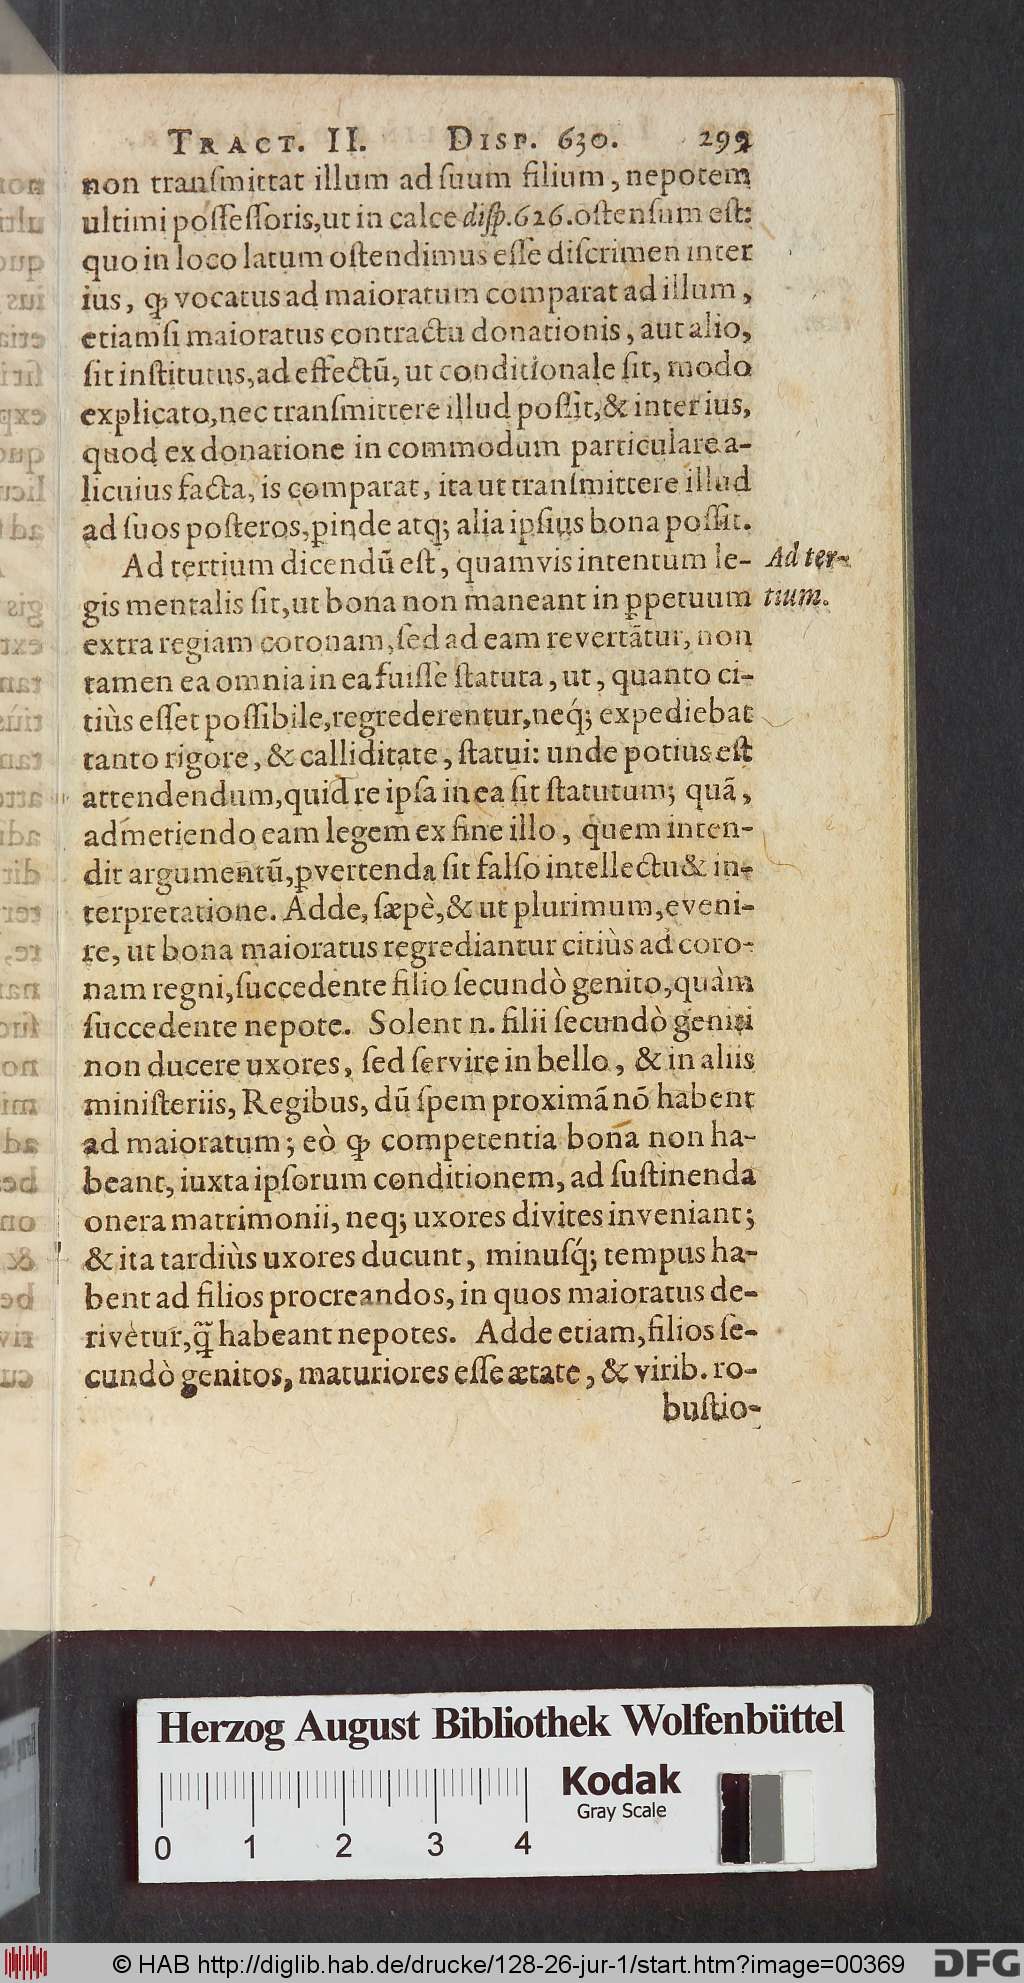 TRACT. II. DISP. 630. 299
non tranſmittat illum ad ſuum filium, nepotem
ultimi poſſeſſoris, ut in calce diſp. 626. oſtenſum eſt:
quo in loco latum oſtendimus eſſe diſcrimen inter
ius, ꝙ vocatus ad maioratum comparat ad illum,
etiamſi maioratus contractu donationis, aut alio,
ſit inſtitutus, ad effectū, ut conditionale ſit, modo
explicato, nec tranſmittere illud poſſit, & inter ius,
quod ex donatione in commodum particulare a-
licuius facta, is comparat, ita ut tranſmittere illud
ad ſuos poſteros, ꝑinde atq; alia ipſius bona poſſit.
Ad tertium dicendū eſt, quamvis intentum le-
Ad ter-
gis mentalis ſit, ut bona non maneant in ꝑpetuum
tium.
extra regiam coronam, ſed ad eam revertãtur, non
tamen ea omnia in ea fuiſſe ſtatuta, ut, quanto ci-
tiùs eſſet poſſibile, regrederentur, neq́; expediebat
tanto rigore, & calliditate, ſtatui: unde potius eſt
attendendum, quid re ipſa in ea ſit ſtatutum; quã,
admetiendo eam legem ex fine illo, quem inten-
dit argumentū, ꝑvertenda ſit falſo intellectu & in-
terpretatione. Adde, ſæpè, & ut plurimum, eveni-
re, ut bona maioratus regrediantur citiùs ad coro-
nam regni, ſuccedente filio ſecundò genito, quàm
ſuccedente nepote. Solent n. filii ſecundò geniti
non ducere uxores, ſed ſervire in bello, & in aliis
miniſteriis, Regibus, dū ſpem proximã nõ habent
ad maioratum; eò ꝙ competentia bona non ha-
beant, iuxta ipſorum conditionem, ad ſuſtinenda
onera matrimonii, neq; uxores divites inveniant;
& ita tardiùs uxores ducunt, minuſq́; tempus ha-
bent ad filios procreandos, in quos maioratus de-
rivetur, q̃ habeant nepotes. Adde etiam, filios ſe-
cundò genitos, maturiores eſſe ætate, & virib. ro-
buſtio-
Herzog August Bibliothek Wolfenbüttel
Kodak
Gray Scale
0 1 2 3 4
© HAB http://diglib.hab.de/drucke/128-26-jur-1/start.htm?image=00369
DFG